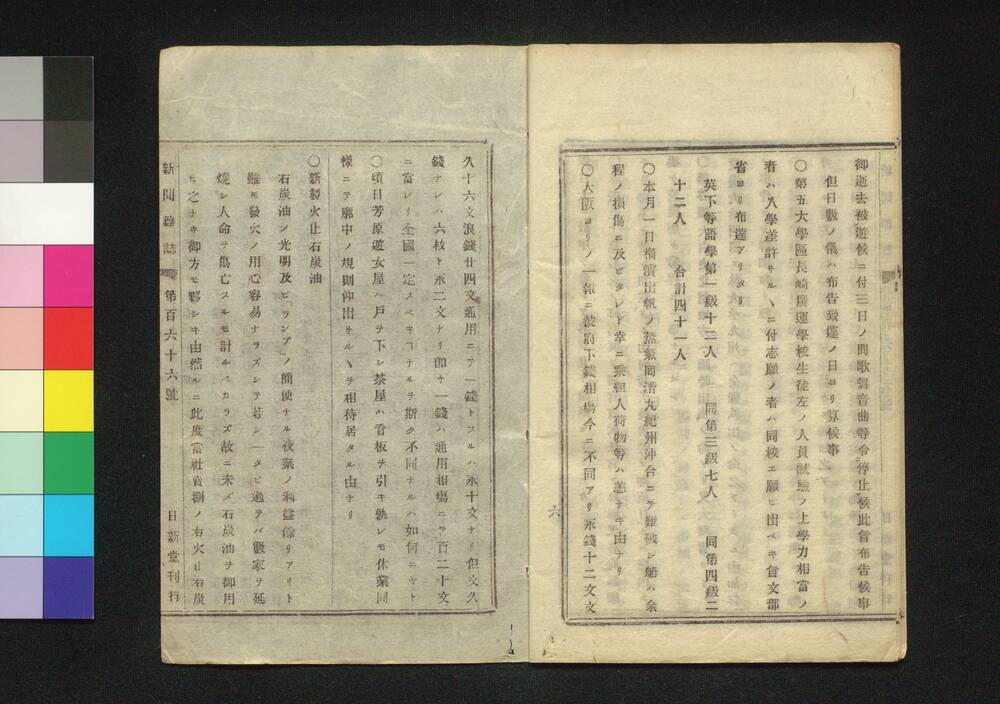 御逝去被遊候ニ付三日ノ間歌舞音曲等令停止候此旨布告候事
但日數ノ儀ハ布告致達ノ日ヨリ算候事
〇第五大學區長崎廣運學校生徒左ノ人員試驗ノ上學力相當ノ
者ハ入學差許サルヽニ付志願ノ者ハ同校エ願ヒ出ベキ旨文部
省ヨリ布達アリタリ
英下等語學第一級十二人 同第三級七人 同第四級二
十二人 合計四十一人
〇本月一日横濱出帆ノ蒸氣同漕丸紀州沖合ニテ難破シ舳ハ余
程ノ損傷ニ及ビタレド幸ニ乘組人荷物等ハ恙ナキ由ナリ
〇大阪ヨリノ一報ニ彼府下錢相場今ニ不同アリ永錢十二文文
六
久十六文浪錢廿四文通用ニテ一錢トスルハ永十文ナリ但文久
錢ナレハ六枚ト永二文ナリ即チ一錢ハ通用相場ニテ百二十文
ニ當レリ全國一定スベキヿナルヲ斯ク不同ナルハ如何ニヤト
〇頃日芳原遊女屋ハ戸ヲ下シ茶屋ハ看板ヲ引キ孰レモ休業同
樣ニテ廓中ノ規則仰出サルヽヲ相待居タル由ナリ
〇新製火止石炭油
石炭油ノ光明及ビランプノ簡便ナル夜業ノ利益餘リアリト
雖モ發火ノ用心容易ナラズシテ若シ一タビ過テバ數家ヲ延
燒シ人命ヲ傷亡スルモ計ルベカラズ故ニ未ダ石炭油ヲ御用
ヒ之ナキ御方モ夥シキ由然ルニ此度當社賣捌ノ右火止石炭
新聞雜誌 第百六十六號 日新堂刊行